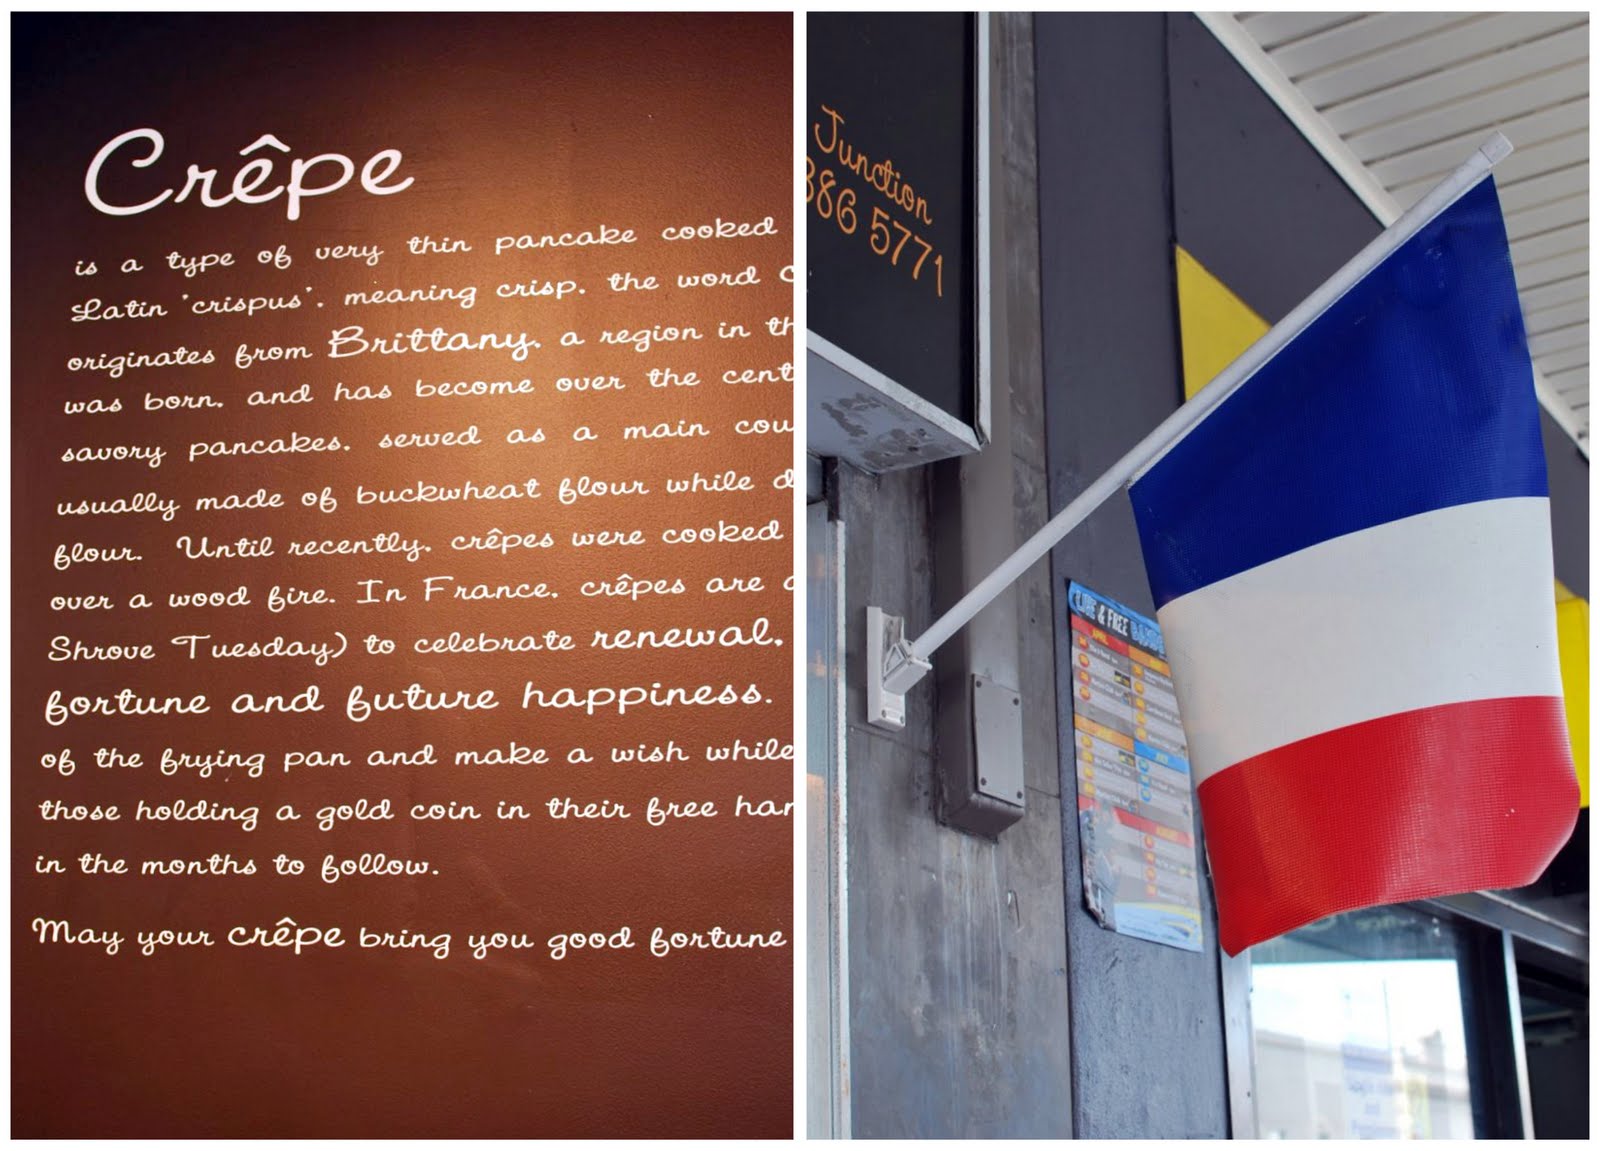 Crêpe
is a type of very thin pancake cooked
Latin 'crispus', meaning crisp, the word
originates from Brittany, a region in
was born, and has become over the
savory pancakes, served as a main
usually made of buckwheat flour while
flour. Until recently, crêpes were cooked
over a wood fire. In France, crêpes are
Shrove Tuesday) to celebrate renewal,
fortune and future happiness.
of the frying pan and make a wish while
those holding a gold coin in their free
in the months to follow.
May your crêpe bring you good fortune
Junction
386 5771
LIVE & FREE
APRIL
AUGUST